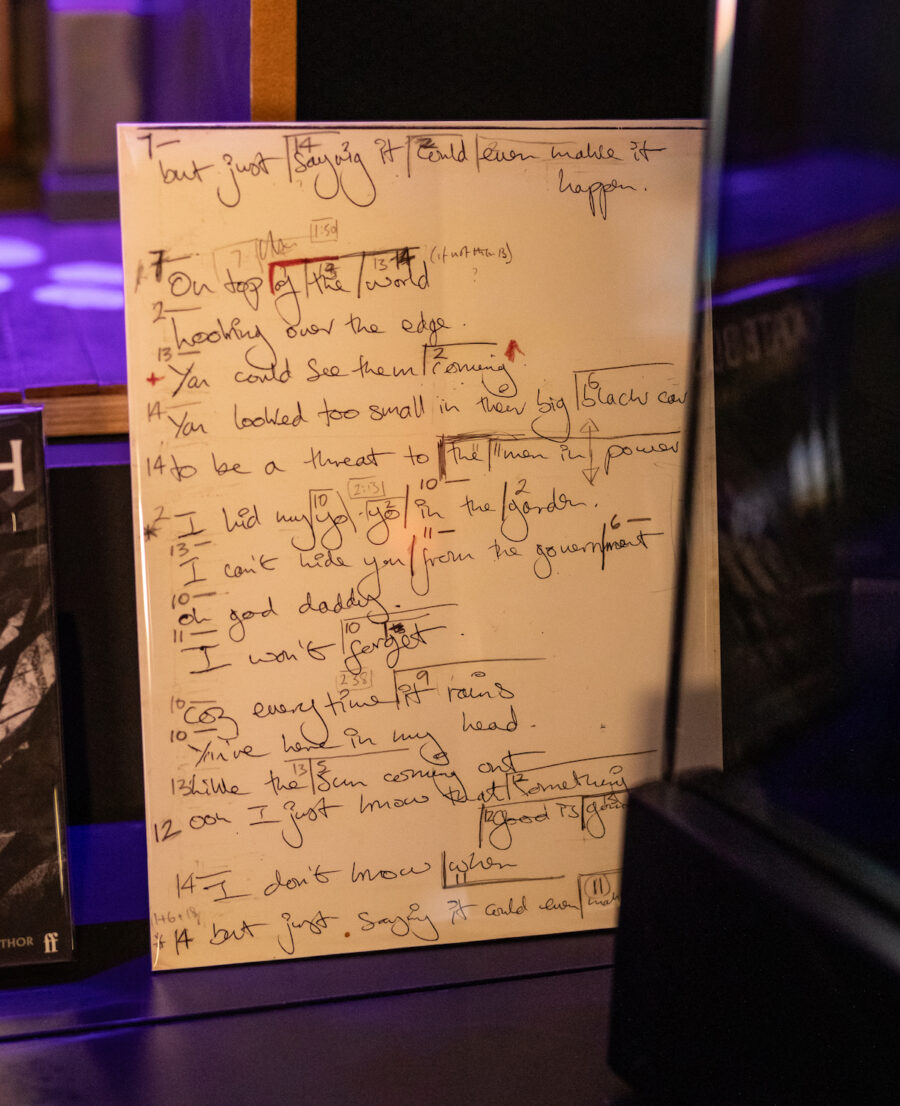 7 14 2
but just saying it could even make it
happen.
1:50
7 13 13 14 (if not then 13)
On top of the world
2
Looking over the edge.
13 2
+ You could see them coming
14 6
You looked too small in their big black car
14 to be a threat to the men in power
11 11
2 10 2:13 2 10 2
* I hid my yo-yo in the garden.
13 11 6
I can't hide you from the government
10
oh god daddy.
11 10
I won't forget
2:38
10 9
Coz everytime it rains
10
You're here in my head.
13 13 5
like the sun coming out
12 ooh I just know that something
12
good is
14 I don't know when
11
1+6+13 11
+ 14 but just saying it could even
H
THOR ff